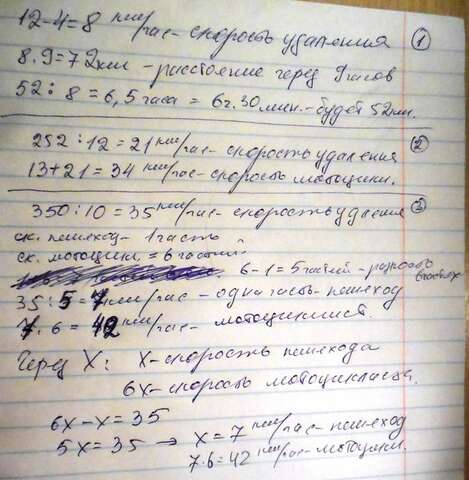 12-4=8 км/час - скорость удаления ①
8·9=72км - расстояние через 9 часов
52:8=6,5 часа = 6ч.30 мин. - будет 52км.
252:12=21 км/час - скорость удаления ②
13+21=34 км/час - скорость мотоцикл.
350:10=35 км/час - скорость удаления
ск. пешехода - 1 часть
ск. мотоцикл = 6 частей
6-1=5 частей - разность в частях
35:5=7 км/час - одна часть - пешеход
7·6=42 км/час - мотоциклист.
Через X: X - скорость пешехода
6X - скорость мотоциклиста.
6X-X=35
5X=35 → X=7 км/час - пешеход
7·6=42 км/час - мотоцикл.